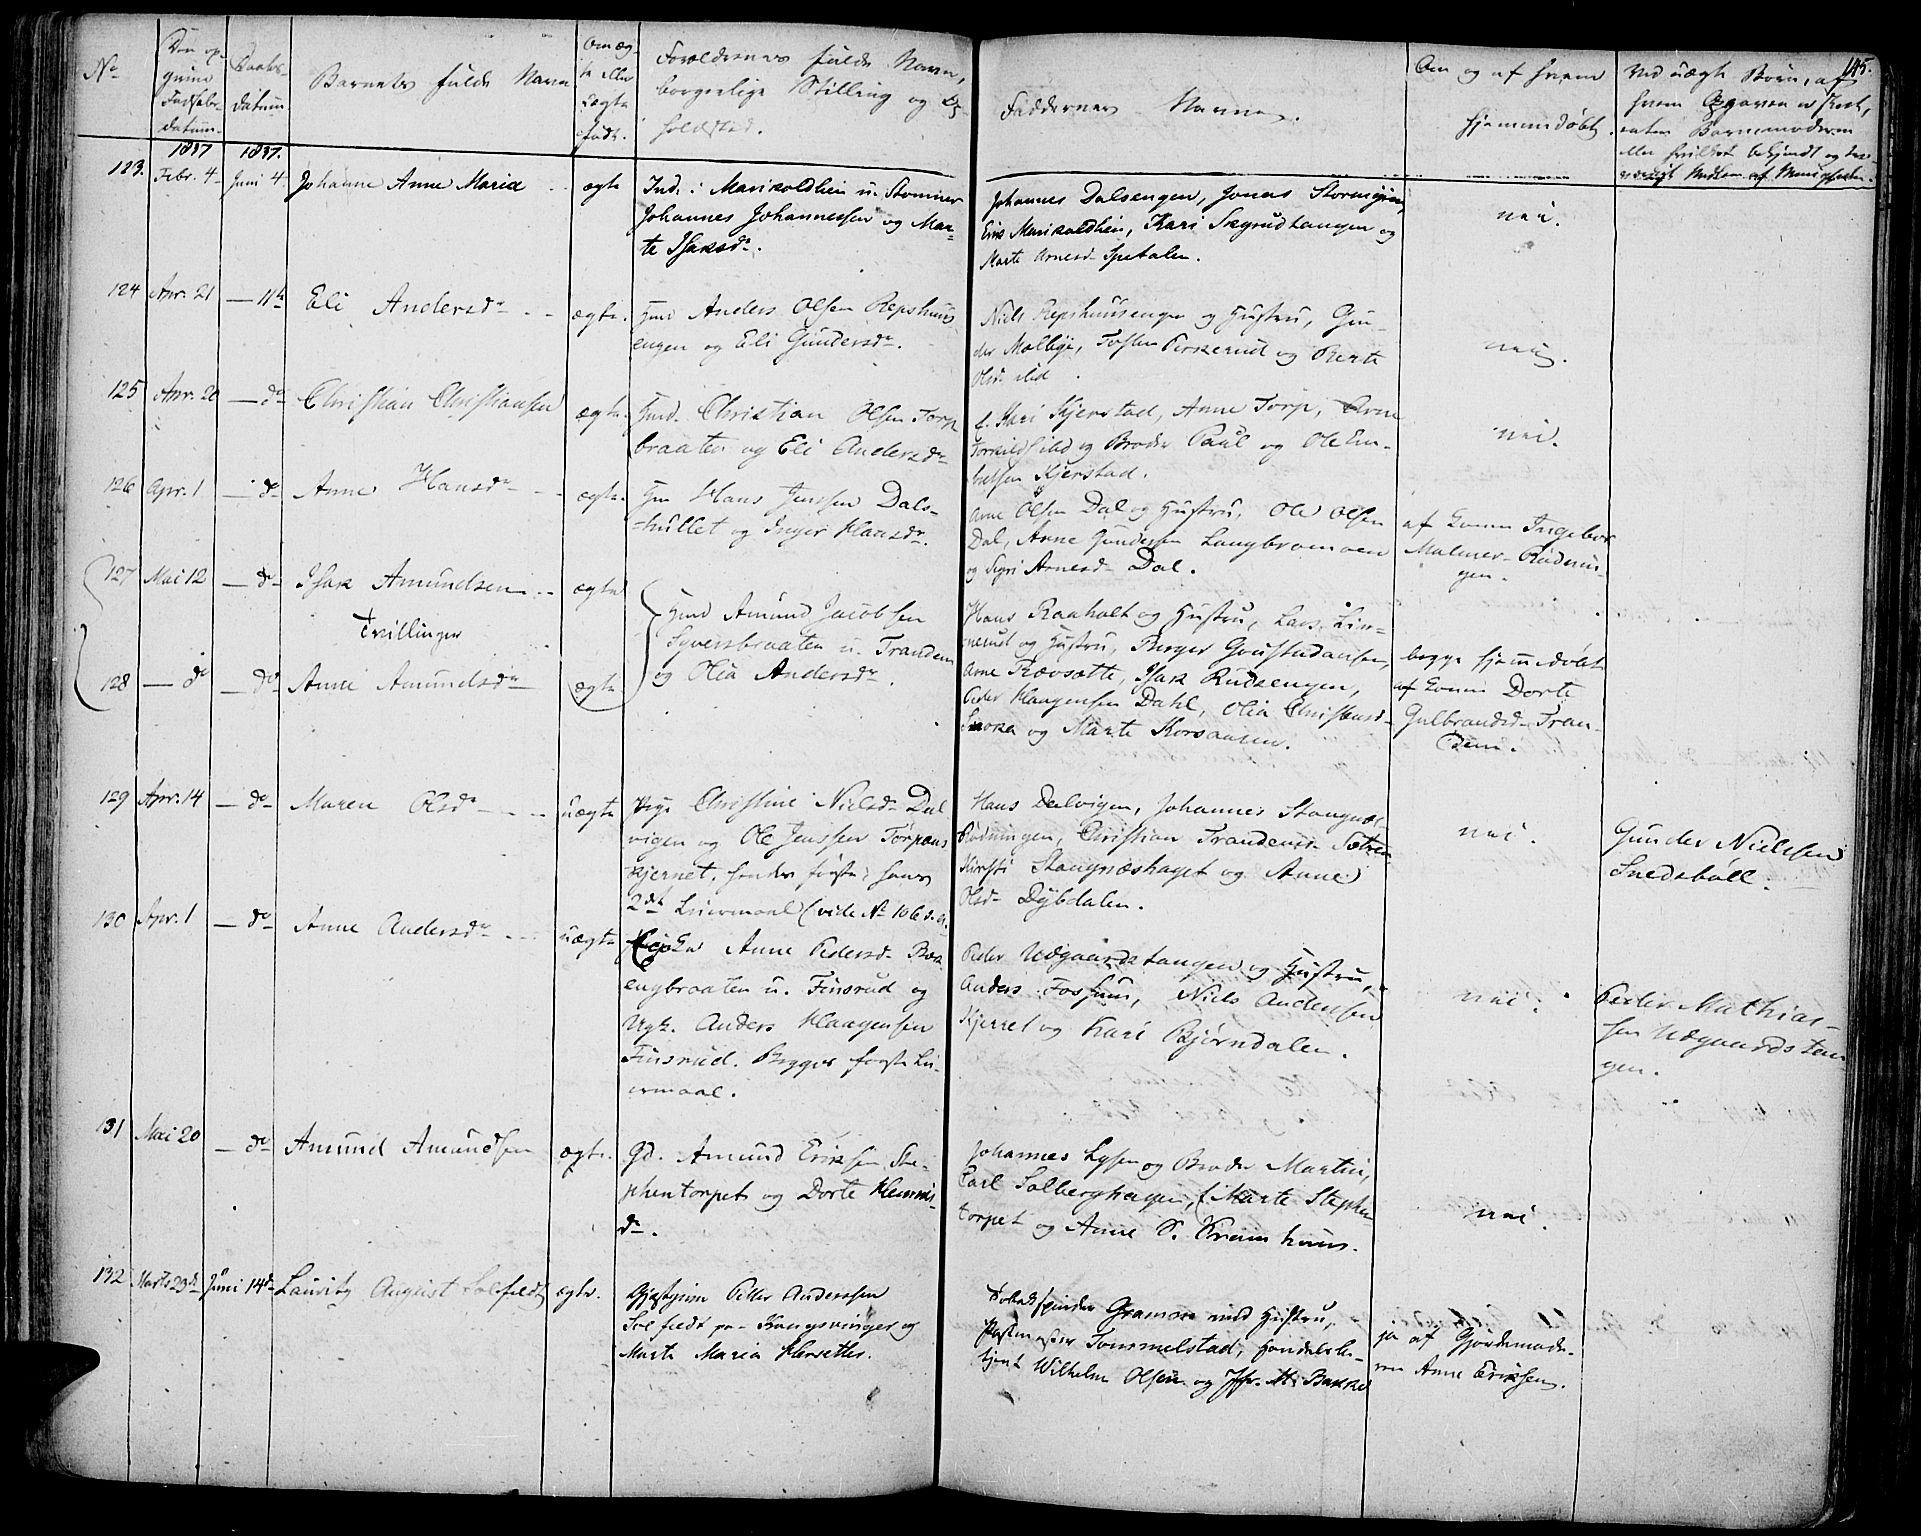 145.
No
Den op-
givne
Fødsels-
datum.
Daabs-
datum
Barnets fulde Navn
Om æg-
te eller
uægte
født.
Forældrenes fulde Navn,
borgerlige Stilling og Op-
holdsted.
Faddernes Navne.
Om og af hvem
hjemmedøbt.
Ved uægte Børn, af
hvem Opgaven er skeet,
enten Barnemoderen
eller hvilket bekjendt og tro-
værdigt Medlem af Menigheden.
1837 1837.
123. Febr. 4 Juni 4 Johanne Anne Maria ægte
Ind. i Marikoldhein u. Stommer
Johannes Johannessen og Mar-
te Isaksdr.
Johannes Dalsengen, Jonas
Erik Marikoldhein, Kari Skyrudtangen og
Marte Arnesd. Spetalen.
nei.
124 Apr. 21 — 11te Eli Andersdr ægte.
Hmd Anders Olsen Repshuus
engen og Eli Gundersdr.
Niels Repshuusengen og Hustru, Gun-
der Malbye, Tosten Perskerud og Berte
Olsd. ibid.
nei.
125 Apr. 20 — do Christian Christiansen ægte.
Hmd. Christian Olsen Torp
braaten og Eli Andersdr
f. Kari Kjerstad, Anne Torp, Arne
og Broder Paul og Ole Em-
bretsen Kjerstad.
nei.
126 Apr. 1 — do Anne Hansdr ægte.
Hmd Hans Jensen Dals-
hullet og Inger Hansdr.
Arne Olsen Dal og Hustru, Ole Olsen
Dal, Arne Gundersen Langbramoen
og Sigri Arnesd. Dal.
af Konen Ingebor
Malmer-Rødnin-
gen.
127 Mai 12 — do Isak Amundsen ægte
Tvillinger
Hmd Amund Jacobsen
Syversbraaten u. Tranden
og Olea Andersdr.
Hans Raaholt og Hustru, Lars Lin-
nerud og Hustru, Birger
Arne Rævsætte, Isak Rudsengen,
Peder Haagensen Dahl, Olia Christensd.
og Marte Korsaasen.
begge hjemmedøbt
af Konen Dorte
Gulbrandsd. Tran-
dem.
128 — do — do Anne Amundsdr ægte
129 Apr. 14 — do Maren Olsdr uægte
Pige Christine Nielsd. Dal
vigen og Ole Jensen Torpens
kjernet, hendes første, hans
2det Leiermaal (vide No 106 d. A.
Hans Dalvigen, Johannes Stangnæs
Rødningen, Christian Trandemsætren
Kirsti Stangnæshaget og Anne
Olsd. Dybdalen.
nei.
Gunder Nielsen
Snedsbøll.
130 Apr. 1 — do Anne Andersdr uægte
Anne Pedersd. Bæk
engbraaten u. Finsrud og
Ugk. Anders Haagensen
Finsrud. Begges første Lei-
ermaal.
Peder Udgaardstangen og Hustru,
Anders Fossum, Niels Andersen
Kjerret og Kari Bjørndalen.
nei.
Peder Mathias-
sen Udgaardstan
gen.
131 Mai 20 — do Amund Amundsen ægte.
Gd. Amund Eriksen Ste-
phentorpet og Dorte Henriks
dr.
Johannes Lysen og Broder Martin,
Carl Solberghagen, f. Marte Stephen
torpet og Anne S. Vrein huus.
nei.
132 Marts 23de Juni 14de Lauritz August Solfeldt ægte.
Gjæstgiver Peder Anderssen
Solfeldt paa Kongsvinger og
Marte Maria Hersether.
Tobakspinder Gramon med Hustru,
Postmester Tommelstad, Handelsbe-
tjent Wilhelm Olsen og Jfr. M. Bakke
ja af Gjordemode-
ren Anne Eriksen.